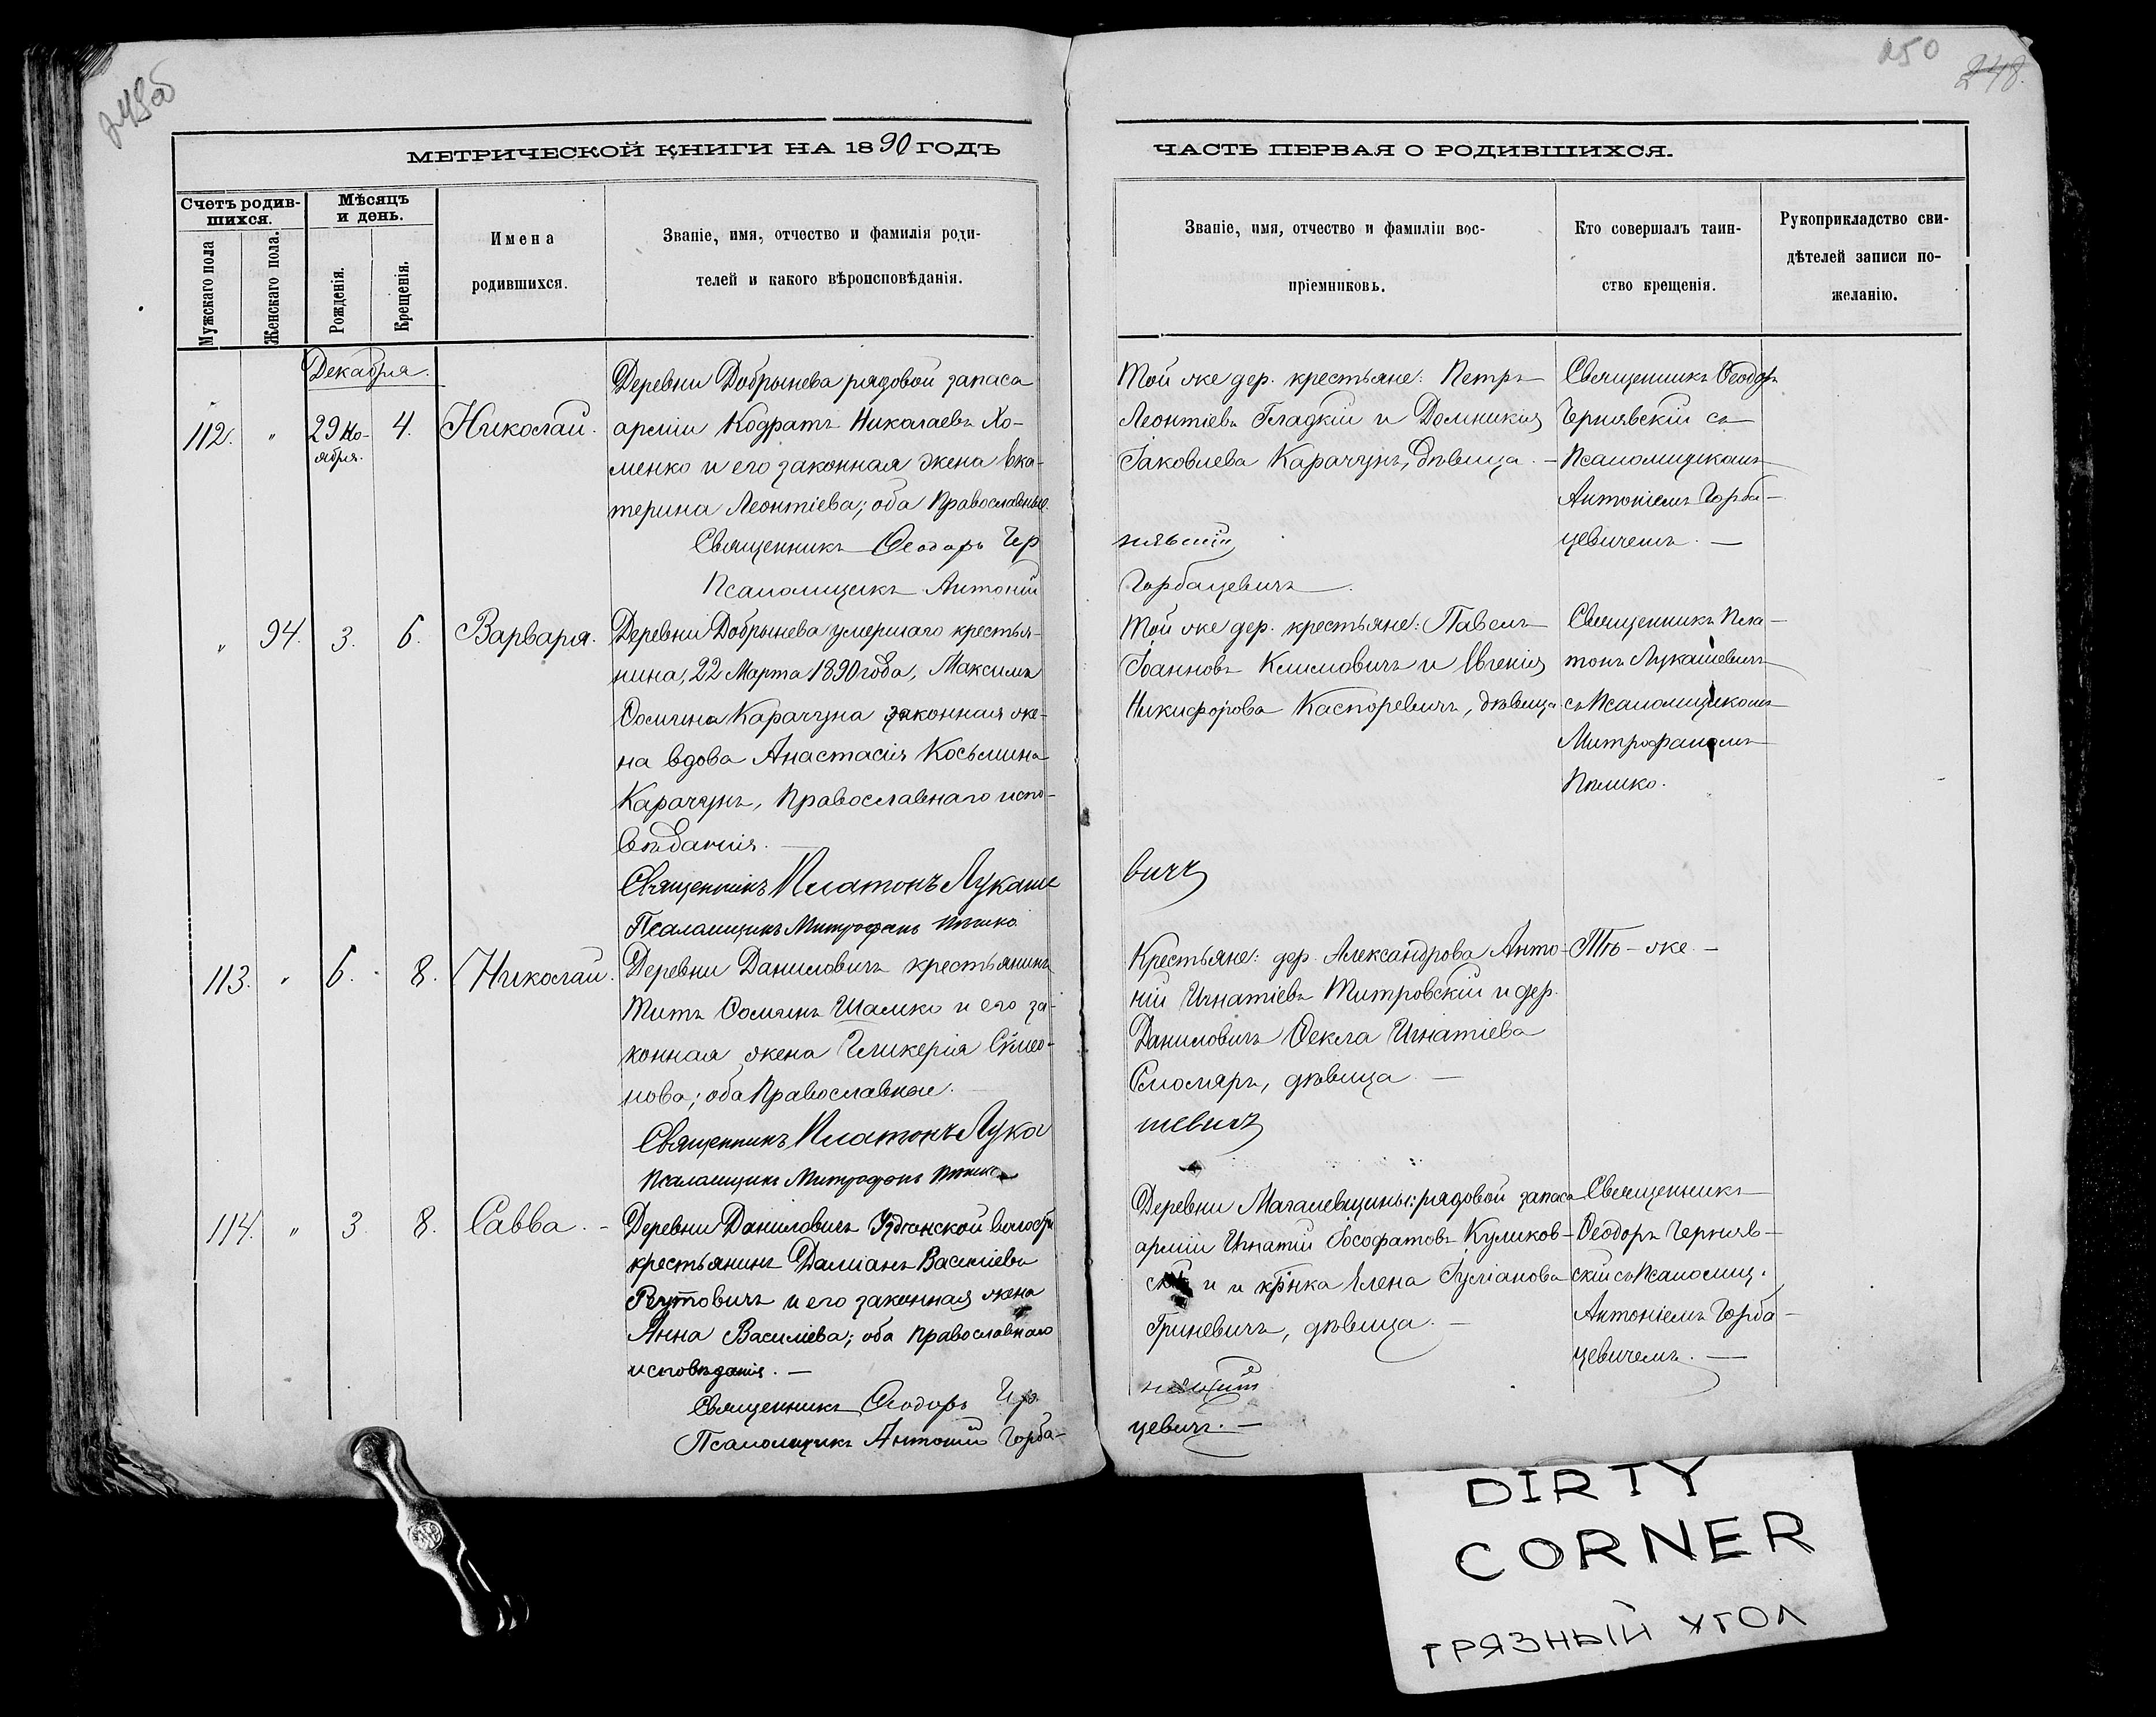 250
248.
МЕТРИЧЕСКОЙ КНИГИ НА 1890 ГОДЪ
ЧАСТЬ ПЕРВАЯ О РОДИВШИХСЯ.
Счетъ родив-
шихся.
Мужскаго пола
Женскаго пола.
Мѣсяцъ
и день.
Рожденія.
Крещенія.
Имена
родившихся.
Званіе, имя, отчество и фамилія роди-
телей и какого вѣроисповѣданія.
Званіе, имя, отчество и фамиліи вос-
пріемниковъ.
Кто совершалъ таин-
ство крещенія.
Рукоприкладство сви-
дѣтелей записи по-
желанію.
Декабря.
112. " 29 Но-
ября. 4. Николай.
Деревни Добрынева рядовой запаса
арміи Кодратъ Николаевъ Хо-
менко и его законная жена Ека-
терина Леонтіева; оба Православные.
Священникъ Ѳеодоръ Чер
Псаломщикъ Антоній
Той же дер. крестьяне: Петръ
Леонтіевъ Гладкій и Домникія
Іаковлева Карачунъ, дѣвица. —
нявскій
Горбацевичъ.
Священникъ Ѳеодоръ
Чернявскій съ
Псаломщикомъ
Антоніемъ Горба-
цевичемъ. —
" 94. 3. 6. Варвара.
Деревни Добрынева умершаго крестья-
нина, 22 Марта 1890 года, Максима
Ѳомина Карачуна законная же-
на вдова Анастасія Косьмина
Карачунъ, Православнаго испо-
вѣданія. —
Священникъ Платонъ Лукаше
Псаломщикъ Митрофанъ
Той же дер. крестьяне: Павелъ
Іоанновъ Климовичъ и Евгенія
Никифорова Каспоревичъ, дѣвица
вичъ
Священникъ Пла-
тонъ Лукашевичъ
съ Псаломщикомъ
Митрофаномъ
113. " 6. 8. Николай.
Деревни Даниловичъ крестьянинъ
Титъ Ѳоминъ Шамко и его за-
конная жена Гликерія Симео-
нова; оба Православные.
Священникъ Платонъ Лука
Псаломщикъ Митрофанъ
Крестьяне: дер. Александрова Анто-
ній Игнатіевъ Титровскій и дер.
Даниловичъ Ѳекла Игнатіева
Смоляръ, дѣвица —
шевичъ
Тѣ-же. —
114. " 3. 8. Савва. —
Деревни Даниловичъ волости
крестьянинъ Даміанъ Василіевъ
Реутовичъ и его законная жена
Анна Василіева; оба Православнаго
исповѣданія. —
Священникъ Ѳеодоръ Чер
Псаломщикъ Антоній Горба-
Деревни Магалевщины: рядовой запаса
арміи Игнатій Іософатовъ Куликов-
скій и кр-нка Елена Іуліанова
Гриневичъ, дѣвица. —
нявскій
цевичъ. —
Священникъ
Ѳеодоръ Черняв-
скій съ Псаломщ.
Антоніемъ Горба-
цевичемъ. —
DIRTY
CORNER
ГРЯЗНЫЙ УГОЛ